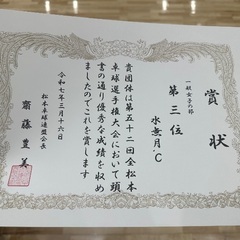 賞状
一般女子の部
第三位
水無月.C
貴団体は第五十二回全松本
卓球選手権大会において頭
書の通り優秀な成績を収め
ましたのでこれを賞します
令和七年三月十六日
松本卓球連盟会長
齋藤重美